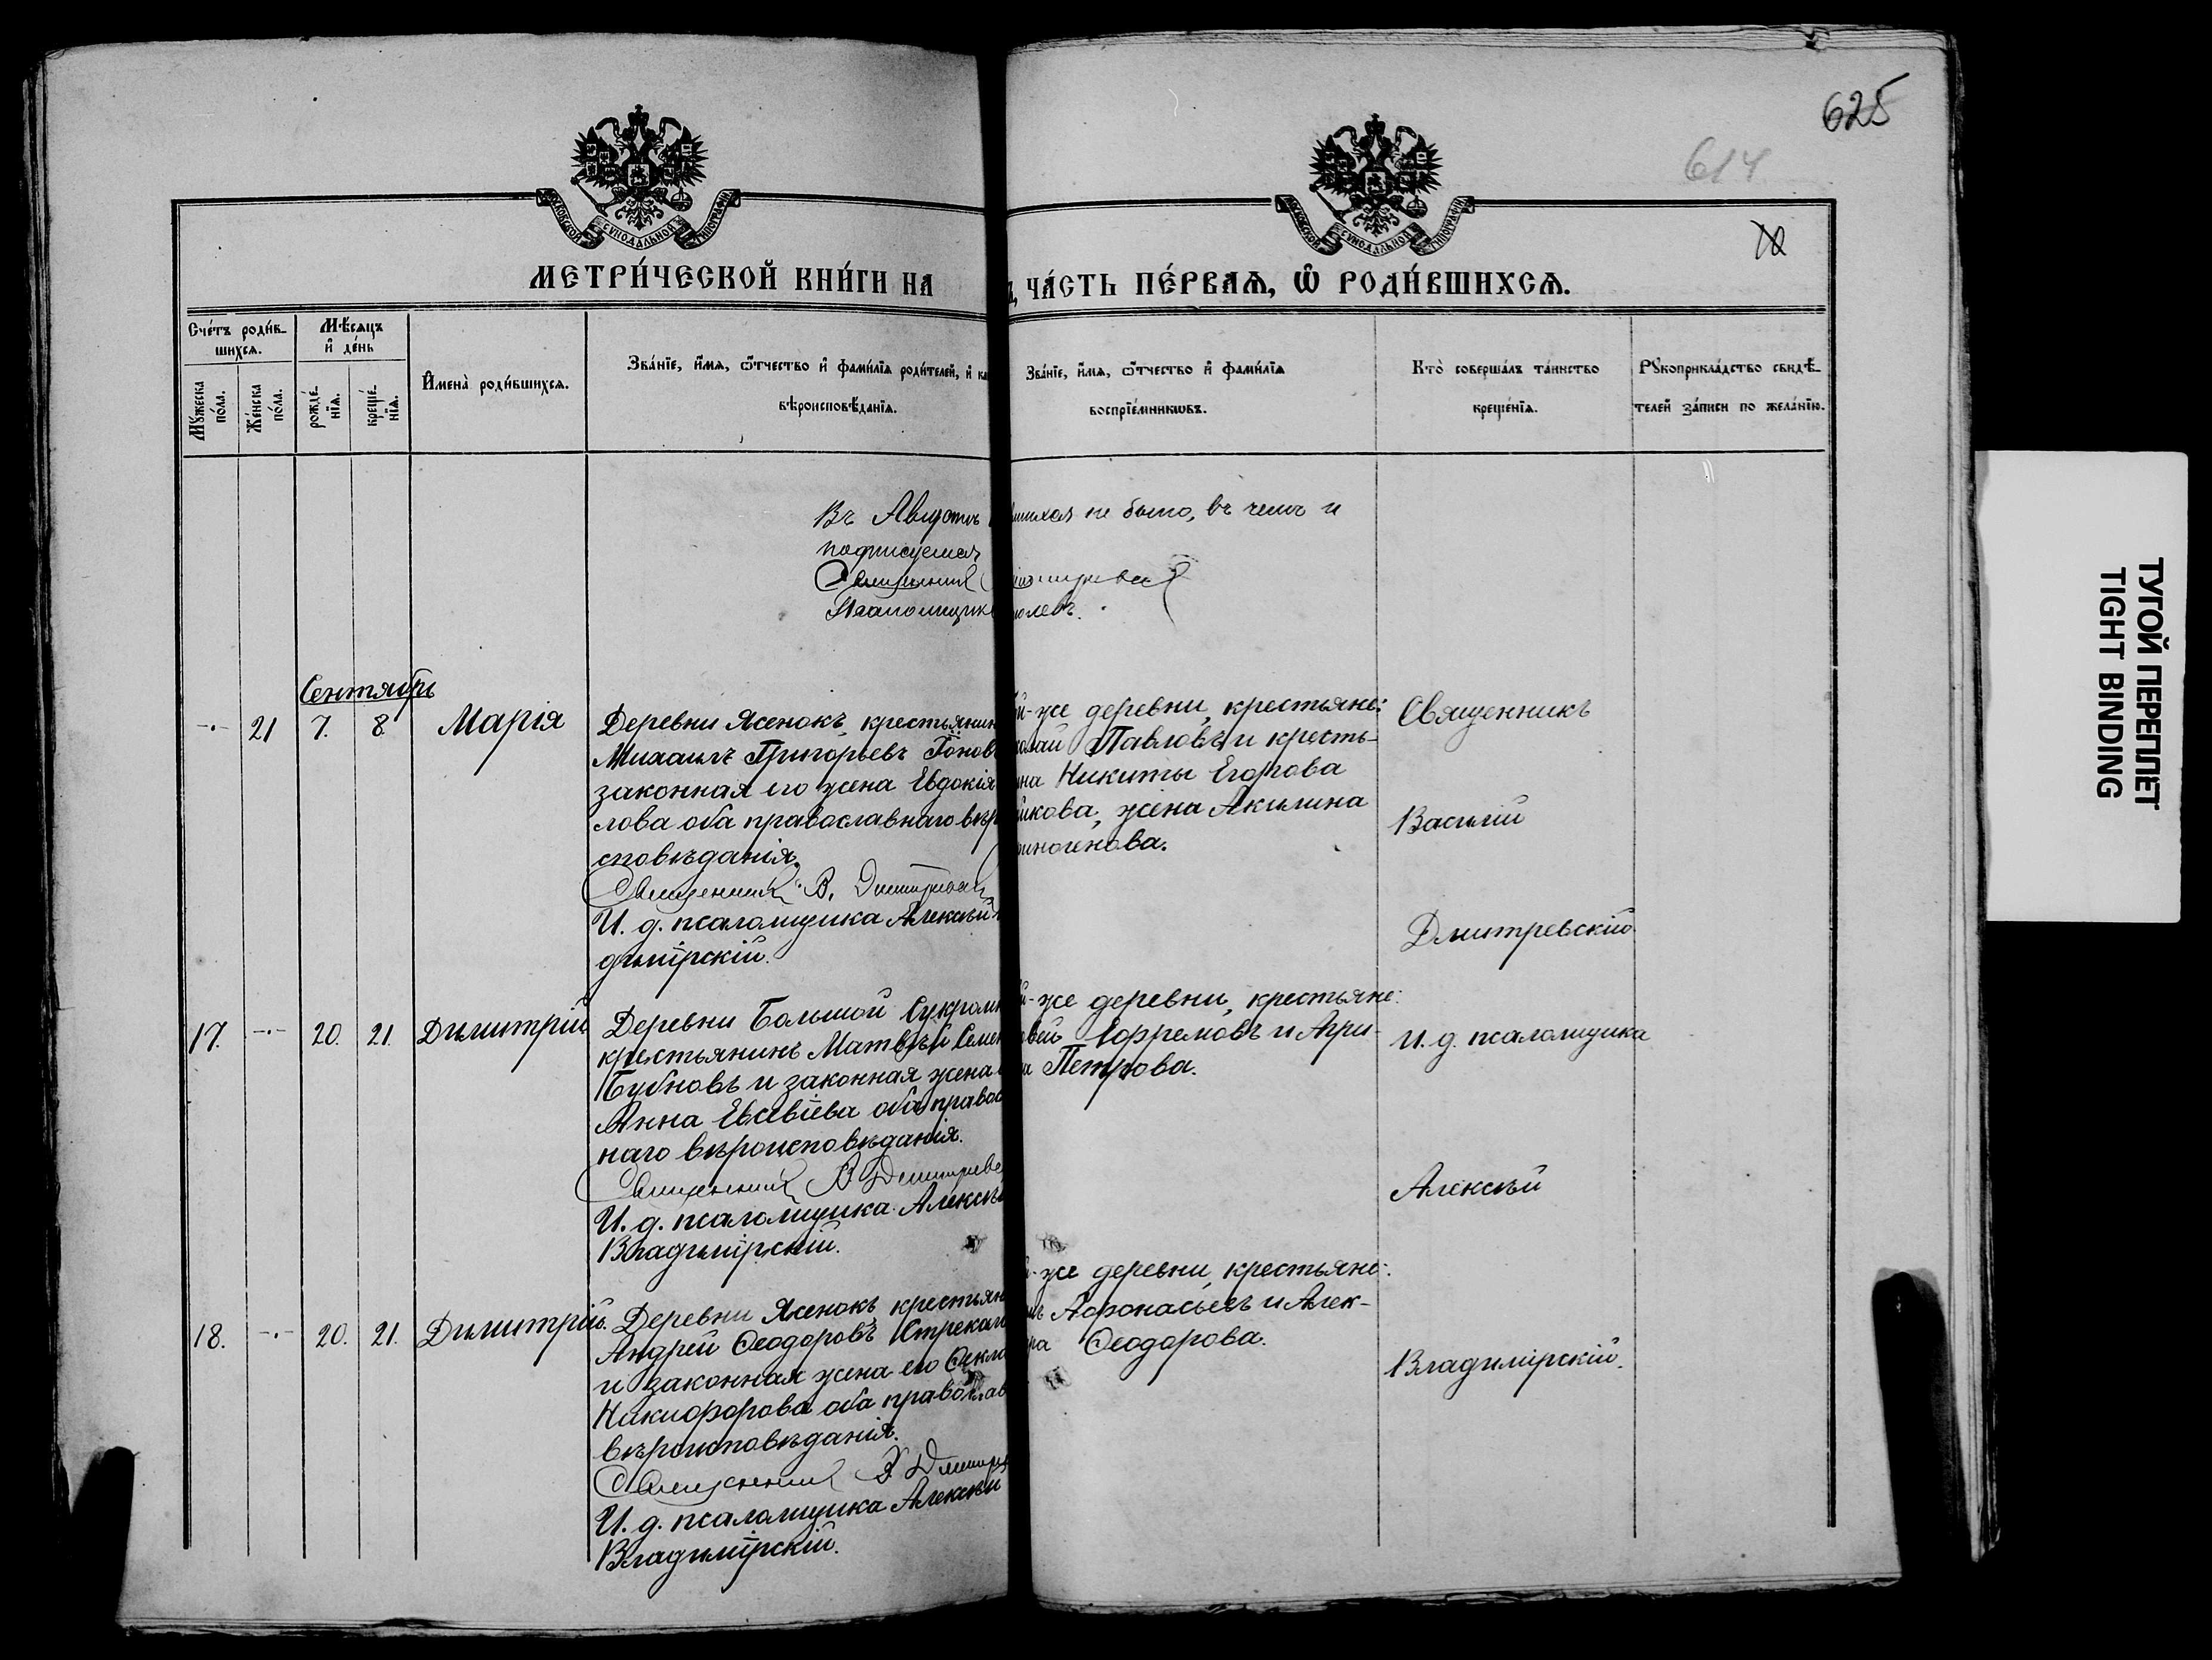 625
614
МЕТРИ́ЧЕСКОЙ КНИ́ГИ НА
ЧА́СТЬ ПЕ́РВАѦ, Ѿ РОДИ́ВШИХСѦ.
Сче́тъ роди́в-
шихсѧ.
Мѣ́сѧцъ
и҆ де́нь
Мꙋ́жеска
по́ла.
Же́нска
по́ла.
рожде́-
нїѧ.
креще́-
нїѧ.
И҆мена̀ роди́вшихсѧ.
Зва́нїе, и҆́мѧ, ѻ҆́тчество и҆ фами́лїѧ роди́телей, и҆ ка
вѣроисповѣ́данїѧ.
Зва́нїе, и҆́мѧ, ѻ҆́тчество и҆ фами́лїѧ
воспрїе́мникѡвъ.
Кто̀ соверша́лъ та́инство
креще́нїѧ.
Рꙋкоприкла́дство свидѣ́-
телей за́писи по жела́нїю.
Въ Августѣ
вшихся не было, въ чемъ и
подписуемся
Священникъ
Псаломщик
Сентябрь
-·- 21 7. 8. Марія
Деревни Ясенокъ, крестьянин
Михаилъ Григорьевъ Гонов
законная его жена Евдокія
лова оба православнаго вѣр
сповѣданія.
Священникъ В. Дмитревск
И. д. псаломщика Алексѣй
димірскій.
й-же деревни, крестьяне:
олай Павловъ и кресть-
ина Никиты Егорова
йкова, жена Акилина
иногенова.
Священникъ
Василій
Дмитревскій.
17. -·- 20. 21. Димитрій
Деревни Большой Сукромк
крестьянинъ Матвѣй Семен
Бубновъ и законная жена
Анна Евсевіева оба правос
наго вѣроисповѣданія.
Священникъ В Дмитревс
И. д. псаломщика Алексѣ
Владимірскій.
й-же деревни, крестьяне:
вей Ефремовъ и Агри-
а Петрова.
И. д. псаломщика
Алексѣй
Владимірскій.
18. -·- 20. 21. Димитрій.
Деревни Ясенокъ, крестьян
Андрей Ѳеодоровъ Стрекал
и законная жена его Ѳекла
Никифорова оба православ
вѣроисповѣданія.
Священникъ В. Дмитрев
И. д. псаломщика Алексѣй
Владимірскій.
й-же деревни, крестьяне:
Афонасьевъ и Алек-
ра Ѳеодорова.
ТУГОЙ ПЕРЕПЛЕТ
TIGHT BINDING